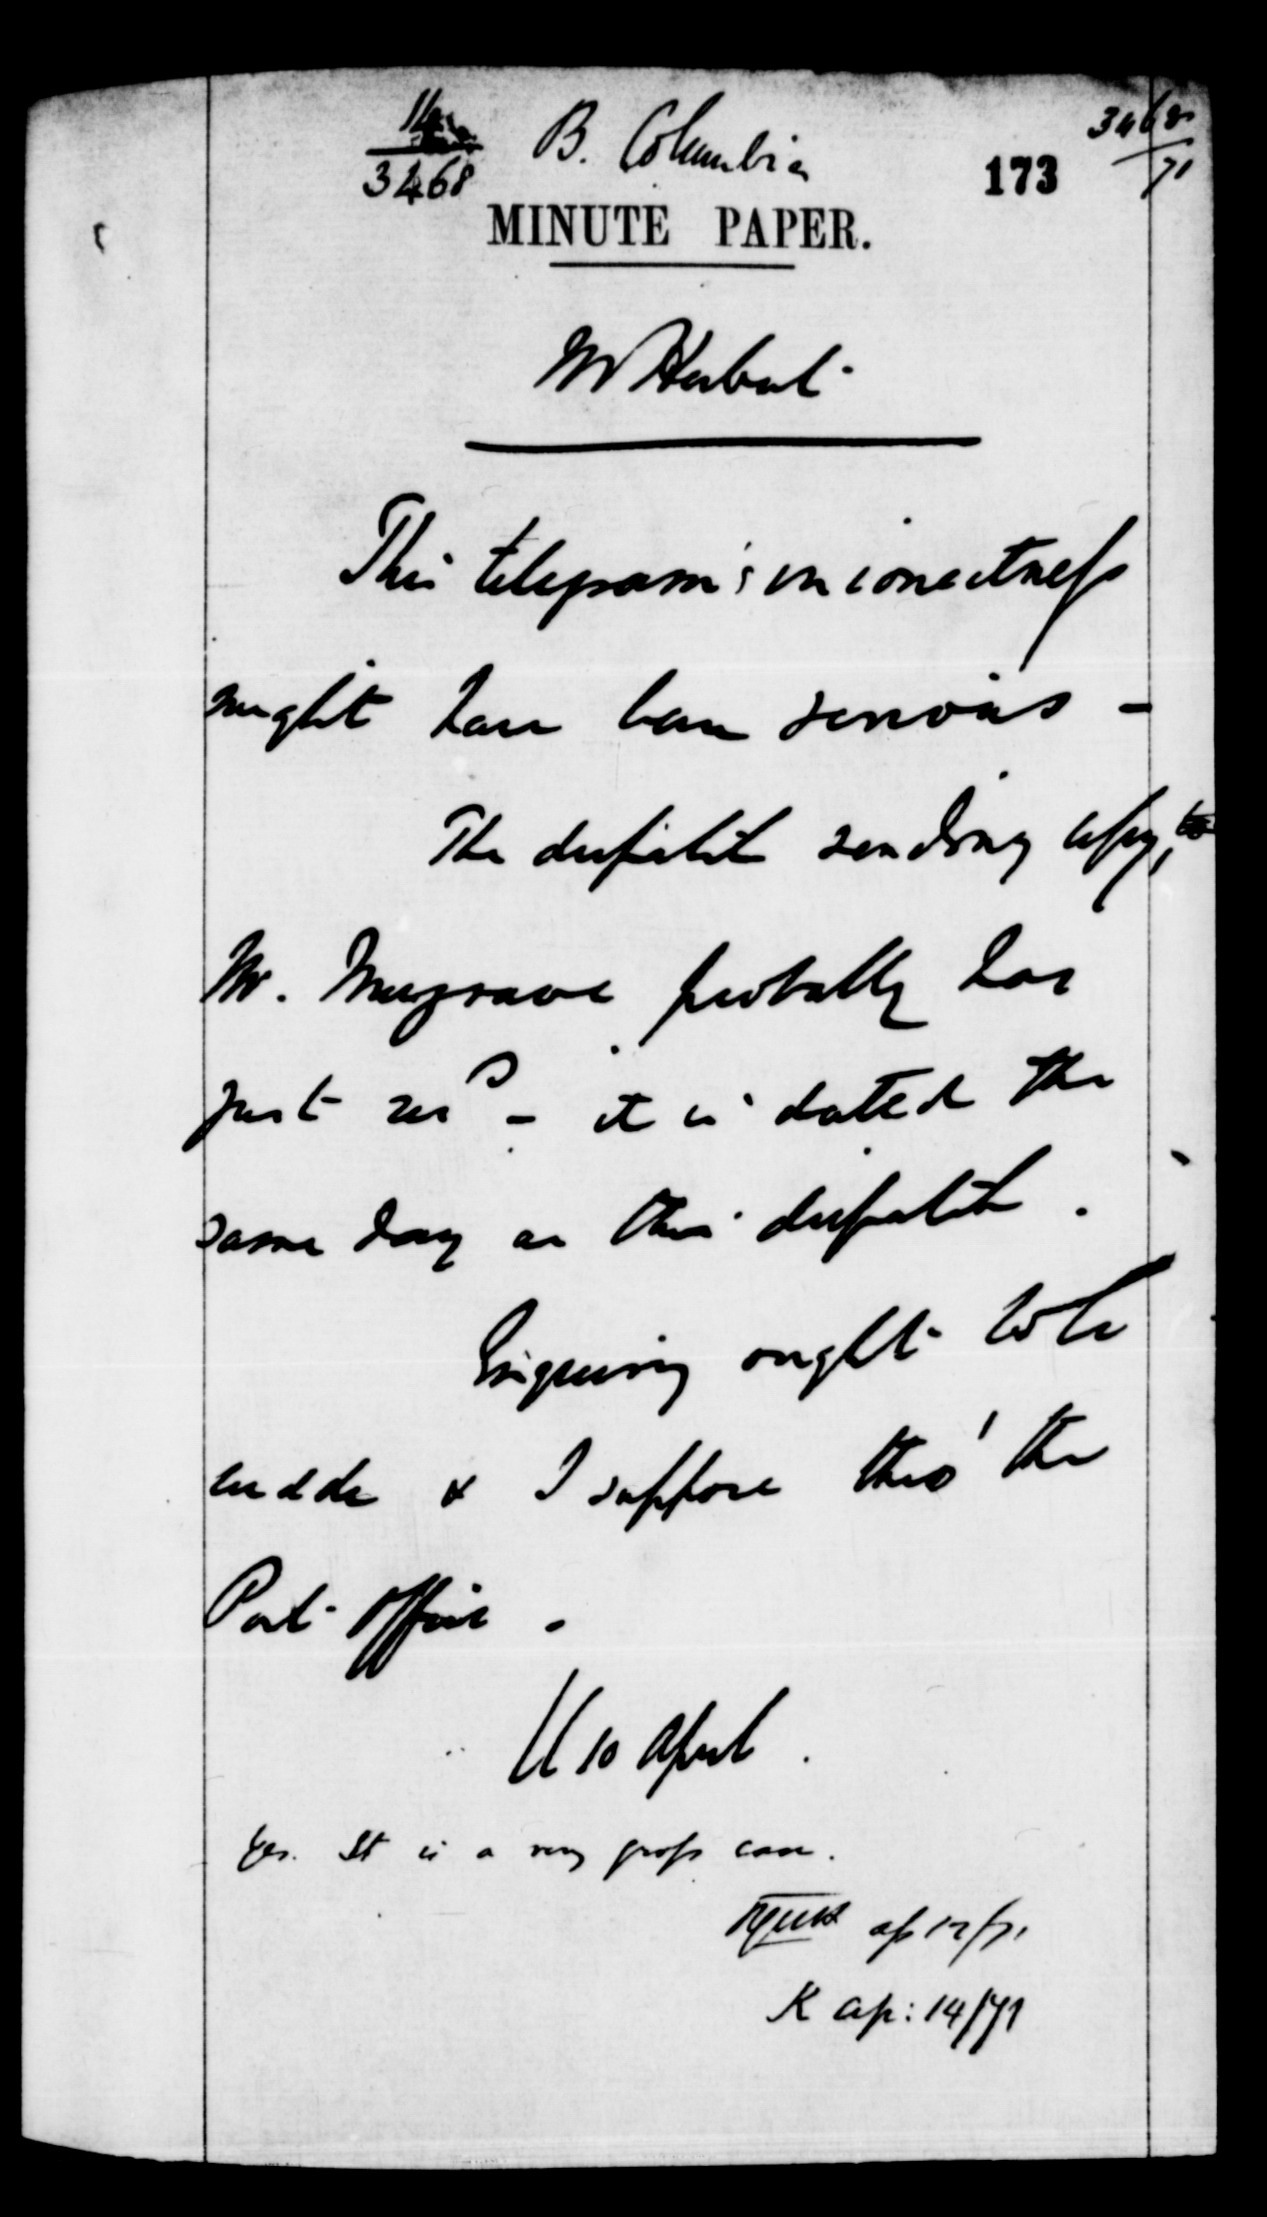 3468
B. Columbia
173
3468
71
MINUTE PAPER.
Mr Herbert
This telegram's incorrectness
might have been serious -
The despatch sending copy, to
Mr. Musgrave probably has
just recd - it is dated the
same day as this despatch.
Enquiry ought to be
made & I suppose thro' the
Post Office.
10 April.
Yes. It is a very gross case.
ap 12/71
K ap: 14/71